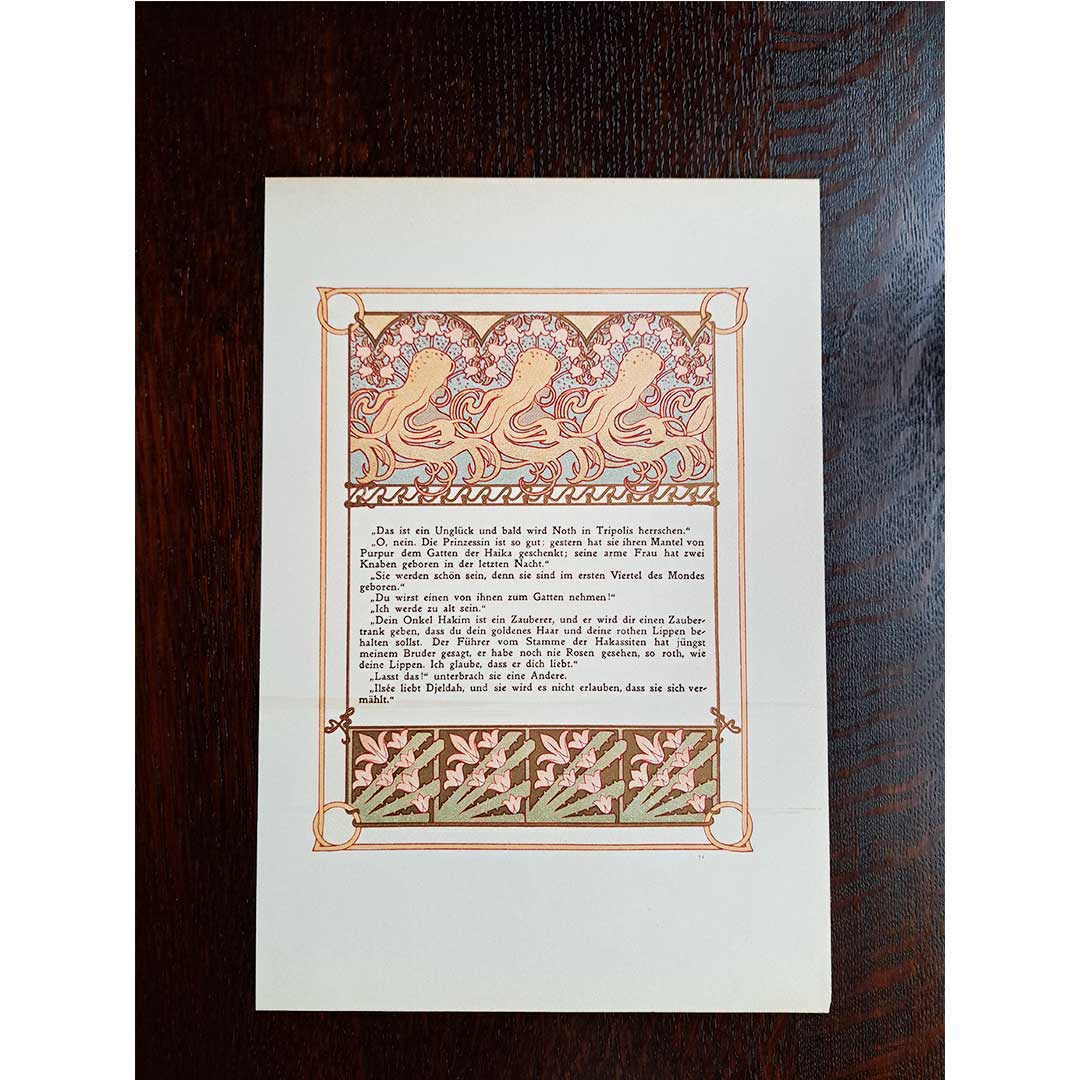 „Das ist ein Unglück und bald wird Noth in Tripolis herrschen.“
„O, nein. Die Prinzessin ist so gut; gestern hat sie ihren Mantel von
Purpur dem Gatten der Haika geschenkt; seine arme Frau hat zwei
Knaben geboren in der letzten Nacht.“
„Sie werden schön sein, denn sie sind im ersten Viertel des Mondes
geboren.“
„Du wirst einen von ihnen zum Gatten nehmen!“
„Ich werde zu alt sein.“
„Dein Onkel Hakim ist ein Zauberer, und er wird dir einen Zauber-
trank geben, dass du dein goldenes Haar und deine rothen Lippen be-
halten sollst. Der Führer vom Stamme der Hakassiten hat jüngst
meinem Bruder gesagt, er habe noch nie Rosen gesehen, so roth, wie
deine Lippen. Ich glaube, dass er dich liebt.“
„Lasst das!“ unterbrach sie eine Andere.
„Ilsée liebt Djeldah, und sie wird es nicht erlauben, dass sie sich ver-
mählt.“